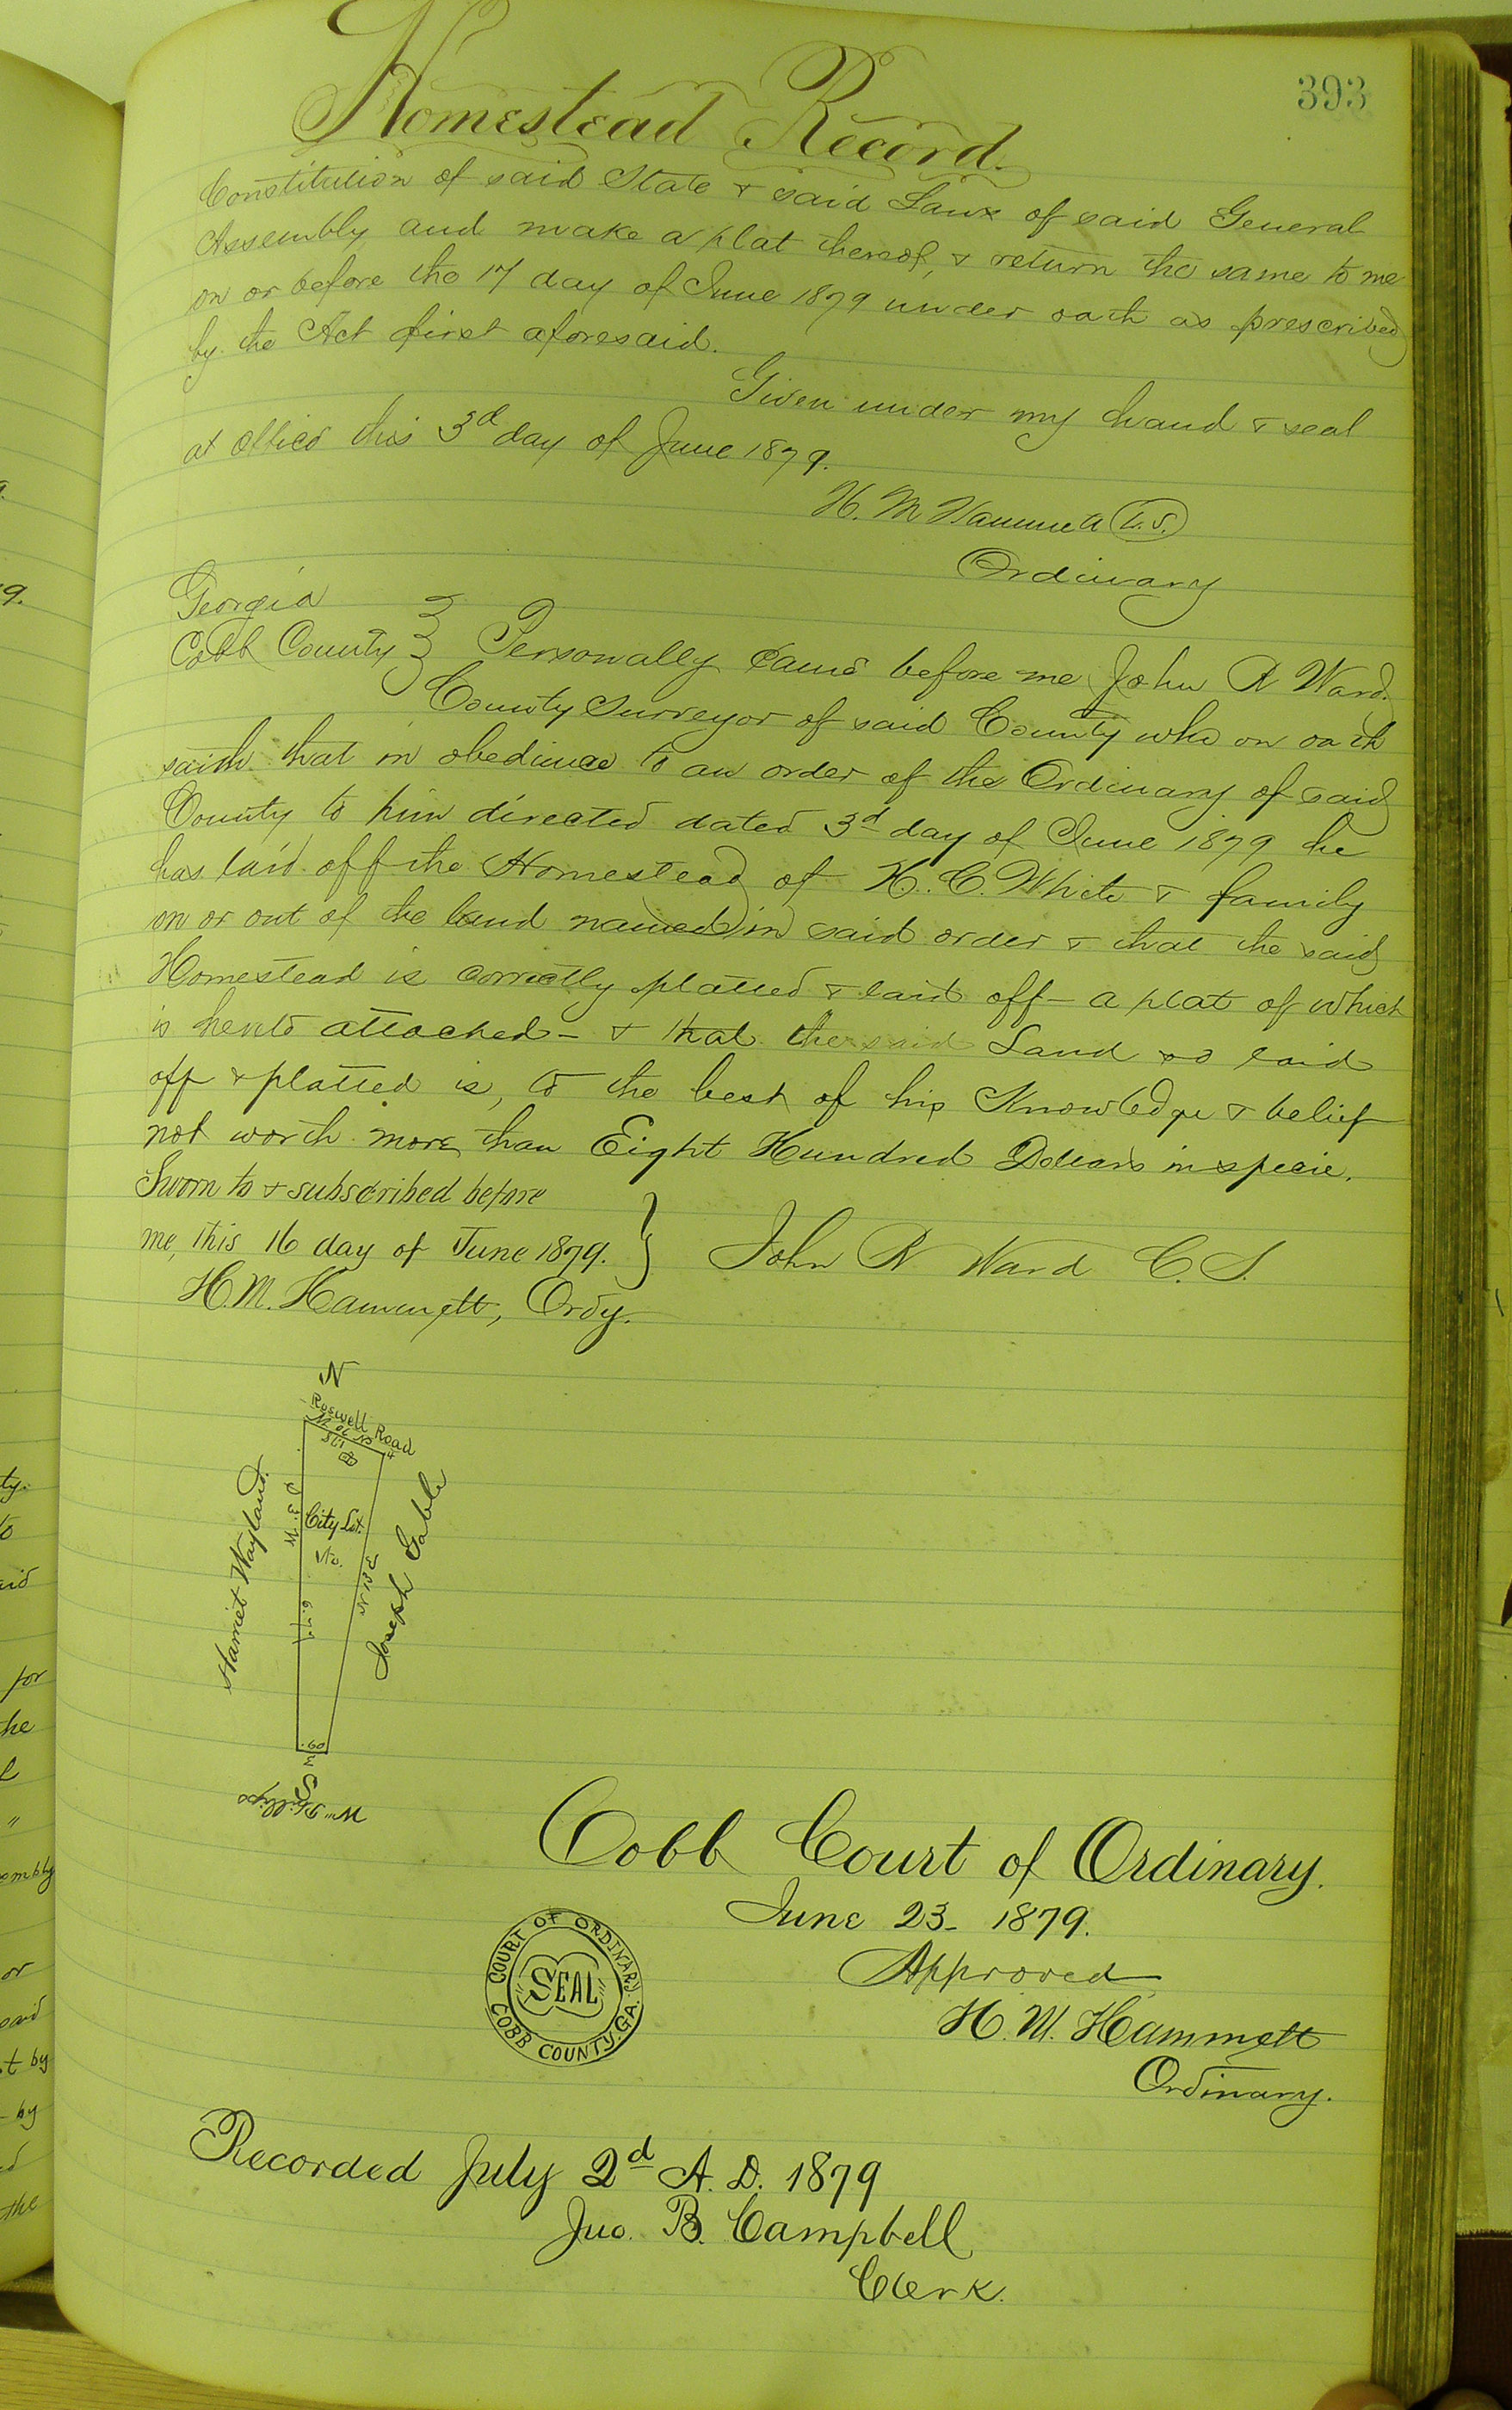 393
Homestead Record.
Constitution of said State & said Laws of said General
Assembly and make a plat thereof, & return the same to me
on or before the 17 day of June 1879 under oath as prescribed
by the Act first aforesaid.
Given under my hand & seal
at office this 3d day of June 1879.
H. M Hammett L.S.
Ordinary
Georgia
Cobb County } Personally came before me John R Ward
County Surveyor of said County who on oath
saith that in obedience to an order of the Ordinary of said
County to him directed dated 3d day of June 1879 he
has laid off the Homestead of H. C. White & family
on or out of the land named in said order & that the said
Homestead is correctly platted & laid off - a plat of which
is hereto attached - & that the said Land so laid
off & platted is, to the best of his Knowledge & belief
not worth more than Eight Hundred Dollars in specie.
Sworn to & subscribed before
me, this 16 day of June 1879. } John R Ward C. S.
H. M. Hammett, Ordy.
N
Roswell Road
N 70 W
City Lot
No.
Harriet Wayland.
Joseph Gable
N 13 E
.60
S
Wm Phillips
Cobb Court of Ordinary.
June 23- 1879.
Approved
H. M. Hammett
Ordinary.
COURT OF ORDINARY.
SEAL
COBB COUNTY, GA.
Recorded July 2d A. D. 1879
Jno. B. Campbell
Clerk.